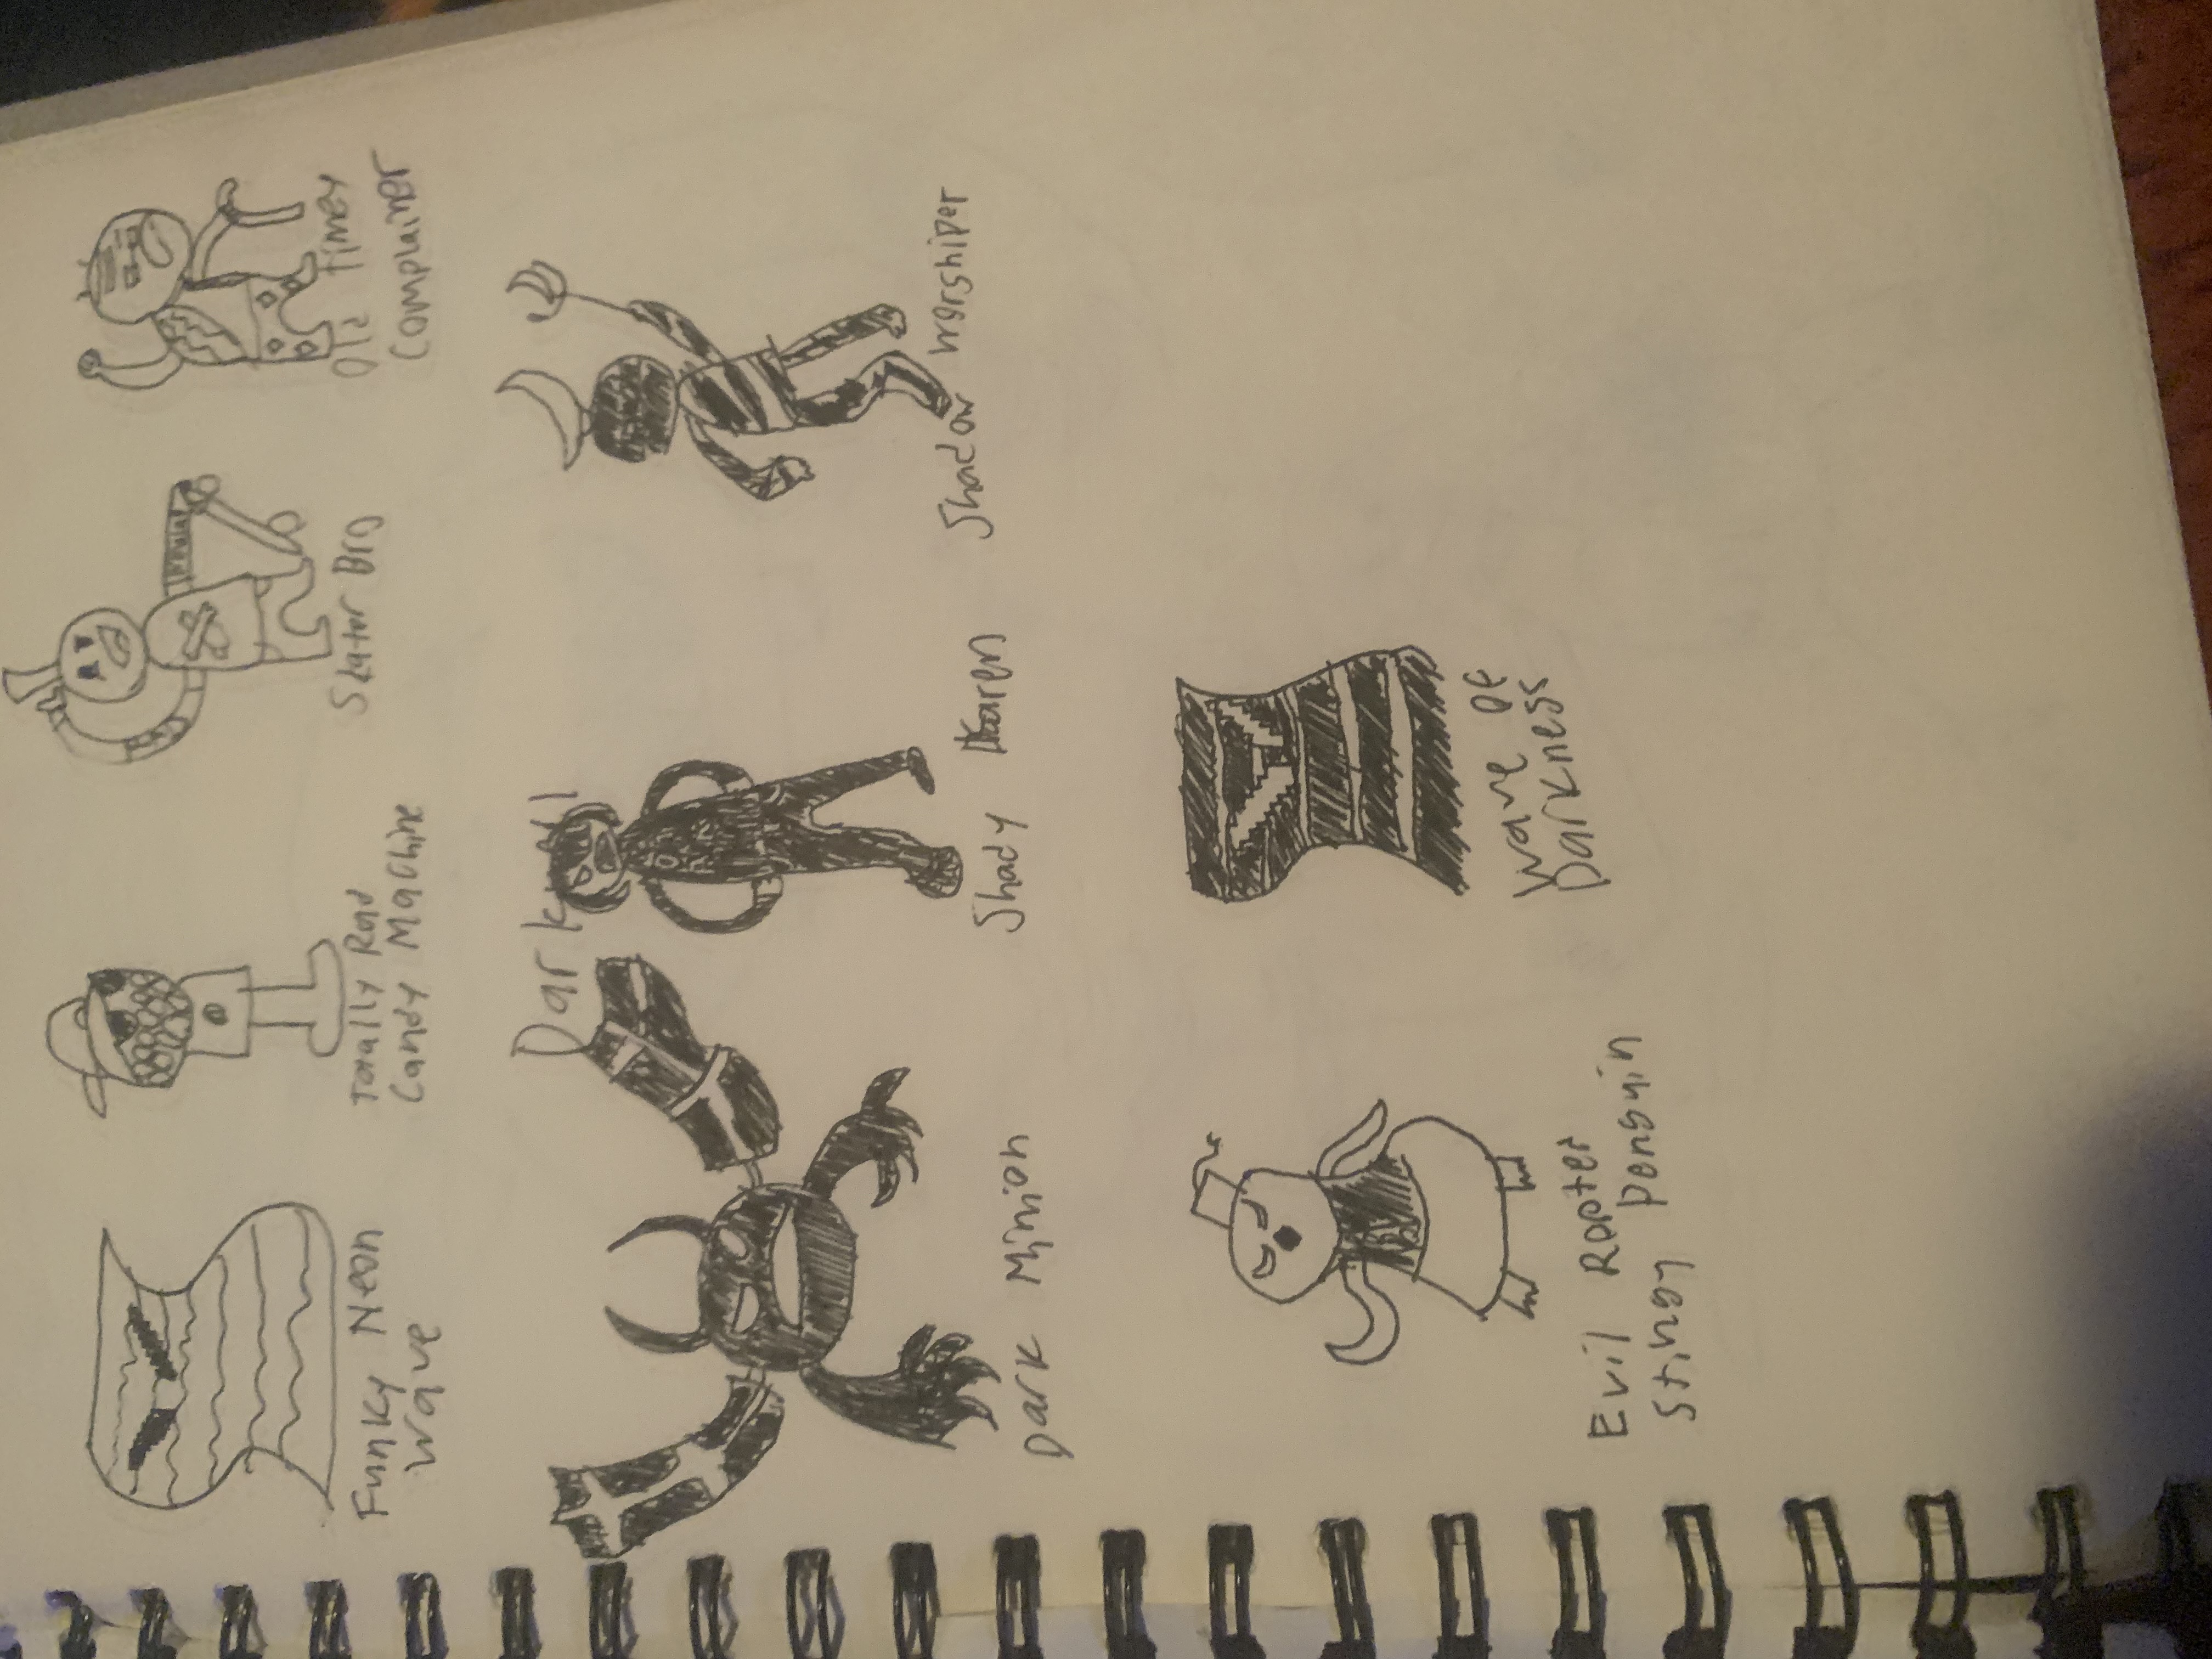 Funky Neon
Wave
Totally Rad
Candy Machine
Skater Bro
Old Timey
Complainer
Dark
Dark Minion
Shady Karen
Shadow Worshiper
Evil Rooter
Stingy Penguin
Wave Of
Darkness